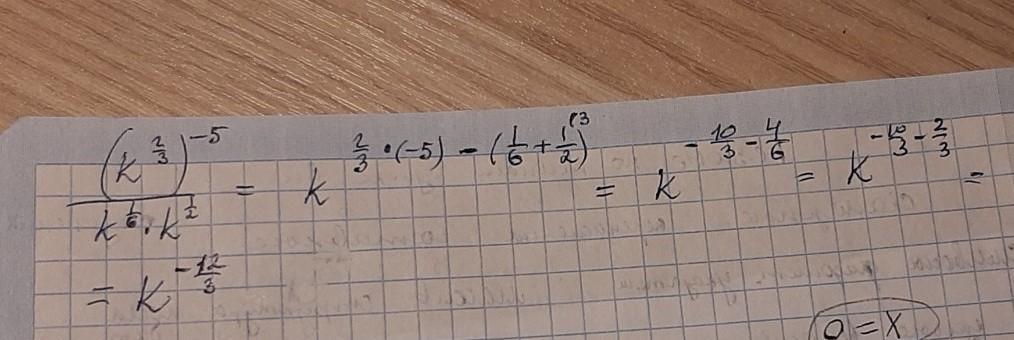 (k^{2/3})^{-5} / (k^{1/6} · k^{1/2}) = k^{2/3 · (-5) - (1/6 + 1/2^{(3})} = k^{-10/3 - 4/6} = k^{-10/3 - 2/3} =
= k^{-12/3}
0 = x